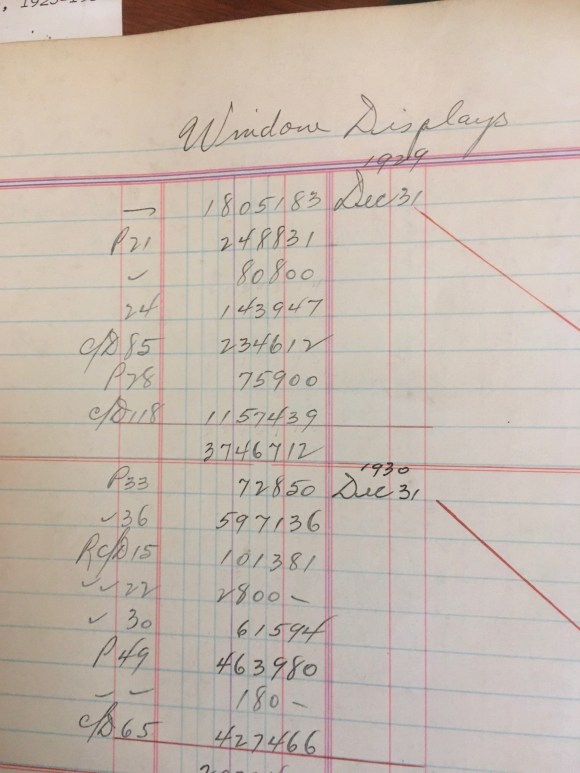 , 1925-19
Window Displays
1929
— 1805183 Dec 31
P21 248831
✓ 80800
24 143947
C/D 85 234612
P28 75900
C/D 118 1157439
3746712
1930
P33 72850 Dec 31
✓ 36 597136
R C/D 15 101381
✓ ✓ 22 2800 –
✓ 30 61594
P49 463980
– – 180 –
C/D 65 427466